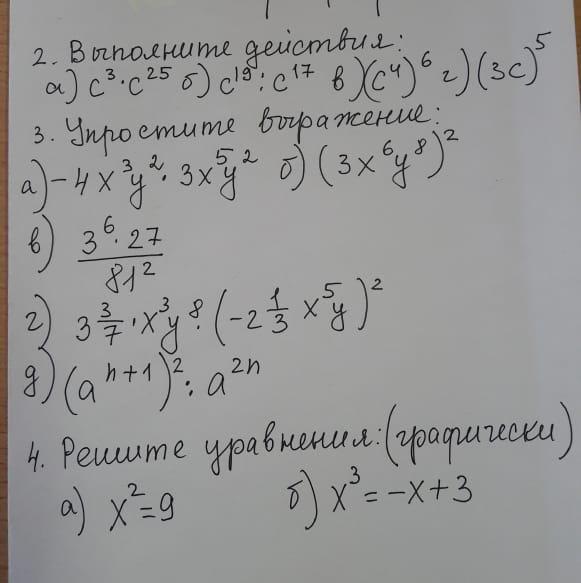 2. Выполните действия:
а) c³·c²⁵ б) c¹⁹:c¹⁷ в)(c⁴)⁶ г)(3c)⁵
3. Упростите выражение:
а) -4x³y²·3x⁵y² б) (3x⁶y⁸)²
в) 3⁶·27/81²
г) 3 3/7·x³y⁸·(-2 1/3 x⁵y)²
д) (aⁿ⁺¹)²:a²ⁿ
4. Решите уравнения:(графически)
а) x²=9 б) x³=-x+3